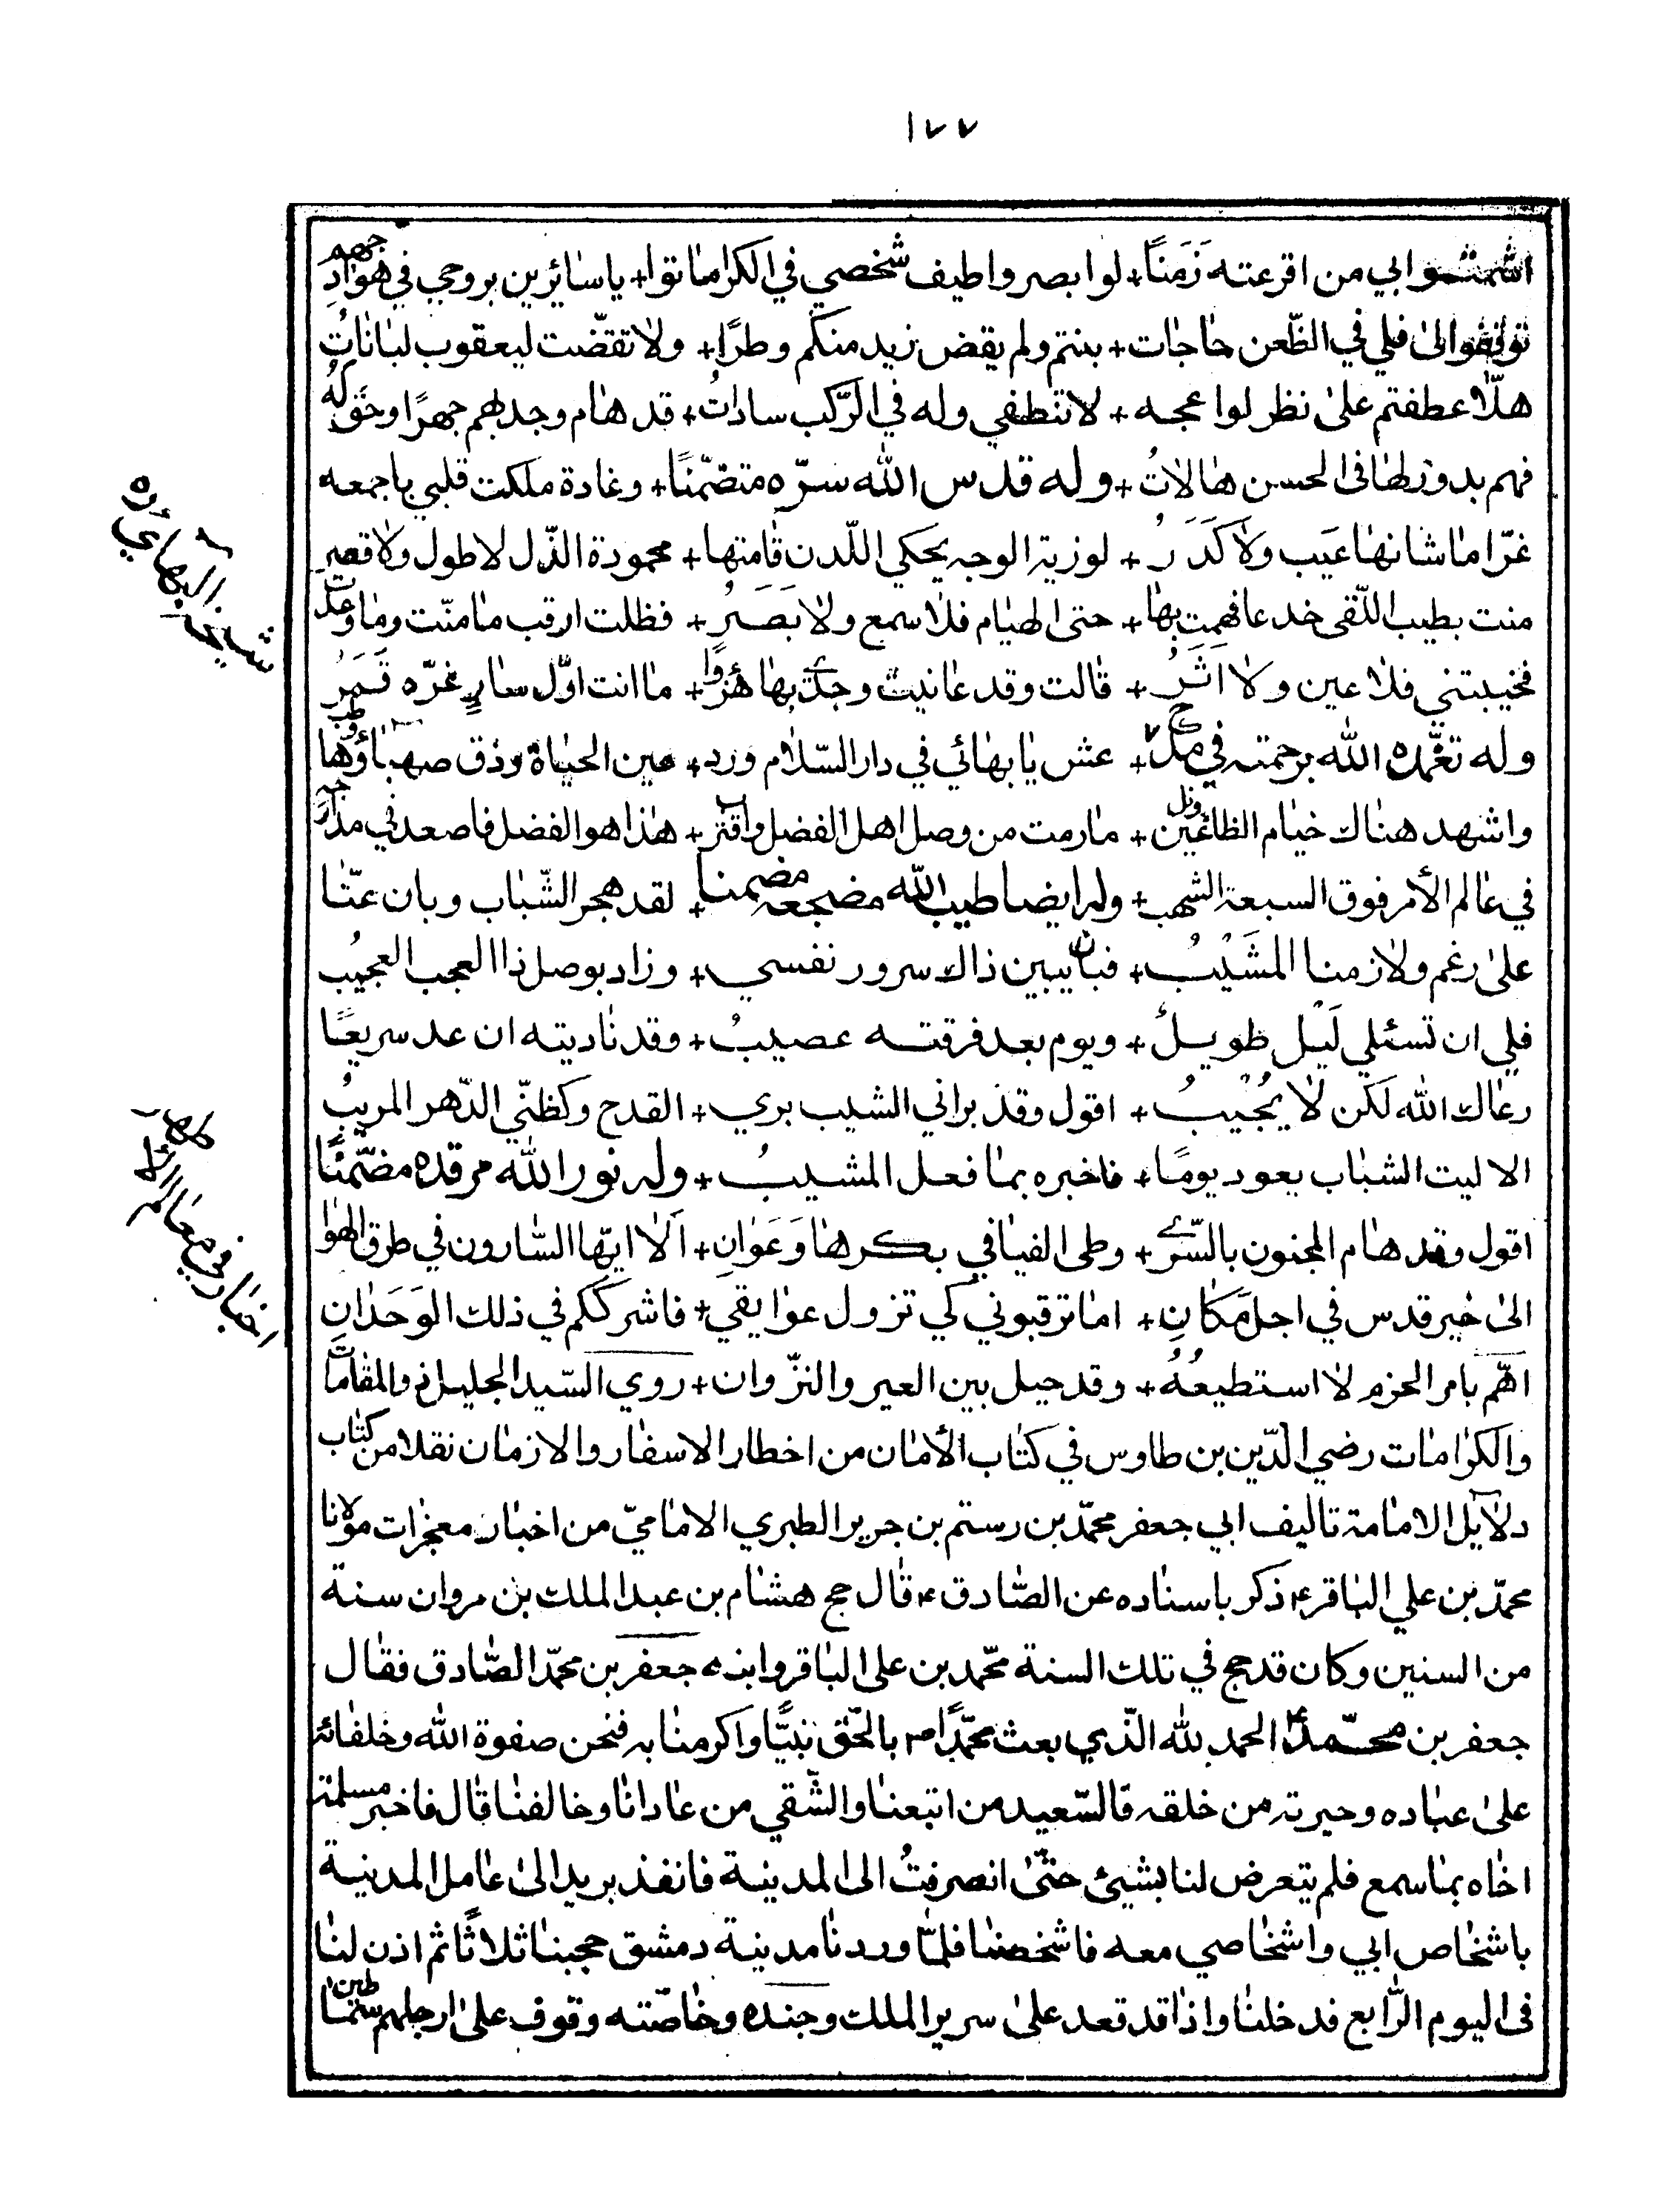 ١٧٧
اشمتموا بي من اقرعته زَمَنًا + لو ابصروا طيف شخصي في الكرا ماتوا + يا سائرين بروحي في هوادجهم
توقفوا لى فلي في الظّعن حاجات + بنتم ولم يقض زيد منكم وطرًا + ولا تقضّت ليعقوب لبانات
هلّا عطفتم على نظر لواعجه + لا تنطفي وله في الرّكب سادات + قد هام وجد لهم جهرًا وحقّ له
فهم بدور لها فى الحسن هالات + وله قدس الله سرّه متضمّنًا + وغادة ملكت قلبي باجمعه
غرّا ما شانها عَيب ولا كَدَرُ + لوزية الوجه يحكي اللّدن قامتها + محمودة الذّل لا طول ولا قصر
منت بطيب اللّقى خدعا فهمت بها + حتى الهيام فلا سمع ولا بَصَرُ + فظلت ارقب ما منّت وما وعدت
فخيبتني فلا عين ولا اَثَرُ + قالت وقد عانيت وجدى بها هزؤًا + ما انت اوّل سارٍ غرّه قَمَرُ
وله تغمّده الله برحمته في + عش يا بهائي في دار السّلام ورد + عين الحياة وذق صهباؤها وطب
واشهد هناك خيام الظاعنين ونل + ما رمت من وصل اهل الفضل واقترب + هذا هو الفضل فاصعد في مدارجه
في عالم الأمر فوق السبعة الشهب + وله ايضا طيب الله مضجعه مضمنا + لقد هجر الشّباب وبان عنّا
على رغم ولازمنا المشَيْبُ + فبان ببين ذاك سرور نفسي + وزاد بوصل ذا العجب العجيب
فلي ان تسئلي لَيْل طويلٌ + ويوم بعد فرقته عصيبٌ + وقد ناديته ان عد سريعًا
رعاك الله لكن لا يُجْيبُ + اقول وقد براني الشيب بري + القدح وكظنّي الدّهر المريبُ
الا ليت الشباب يعود يومًا + فاخبره بما فعل المشيبُ + وله نور الله مرقده مضّمنًا
اقول وقد هام المجنون بالسّرى + وطى الفيافي بكرها وَعَوانِ + اَلا ايّها السّارون في طرق الهوا
الى خير قدس في اجل مَكانِ + اما ترقبوني كي تزول عوايقي + فاشرككم في ذلك الوَحَدانِ
اهّم بامر الحزم لا استطيعُهُ + وقد حيل بين العير والنزّوان + روي السّيد الجليل ذو المقامات
والكرامات رضي الدّين بن طاوس في كتاب الأمان من اخطار الاسفار والازمان نقلا من كتاب
دلايل الامامة تاليف ابي جعفر محمّد بن رستم بن جرير الطبري الاماميّ من اخبار معجزات مولانا
محمّد بن علي الباقر ع ذكر باسناده عن الصّادق ع قال حج هشام بن عبد الملك بن مروان سنة
من السنين وكان قد حج في تلك السنة محّمد بن على الباقر وابنه جعفر بن محمّد الصّادق فقال
جعفر بن محمّد ع الحمد لله الّذي بعث محمّدًا ص بالحّق نبيًّا واكرمنا به فنحن صفوة الله وخلفائه
على عباده وحيرته من خلقه فالسّعيد من اتبعنا والشّقي من عادانا وخالفنا قال فاخبر مسلمة
اخاه بما سمع فلم يتعرض لنا بشيئ حتّى انصرفتُ الى المدينة فانفذ بريدا الى عامل المدينة
باشخاص ابي واشخاصي معه فاشخصنا فلمّا وردنا مدينة دمشق حجبنا ثلاثًا ثم اذن لنا
فى اليوم الرّابع فدخلنا واذا قد قعد على سرير الملك وجنده وخاصّته وقوف على ارجلهم سماطين
شيخ البهائي ره
اخبار في معالم الائمة الاطهار